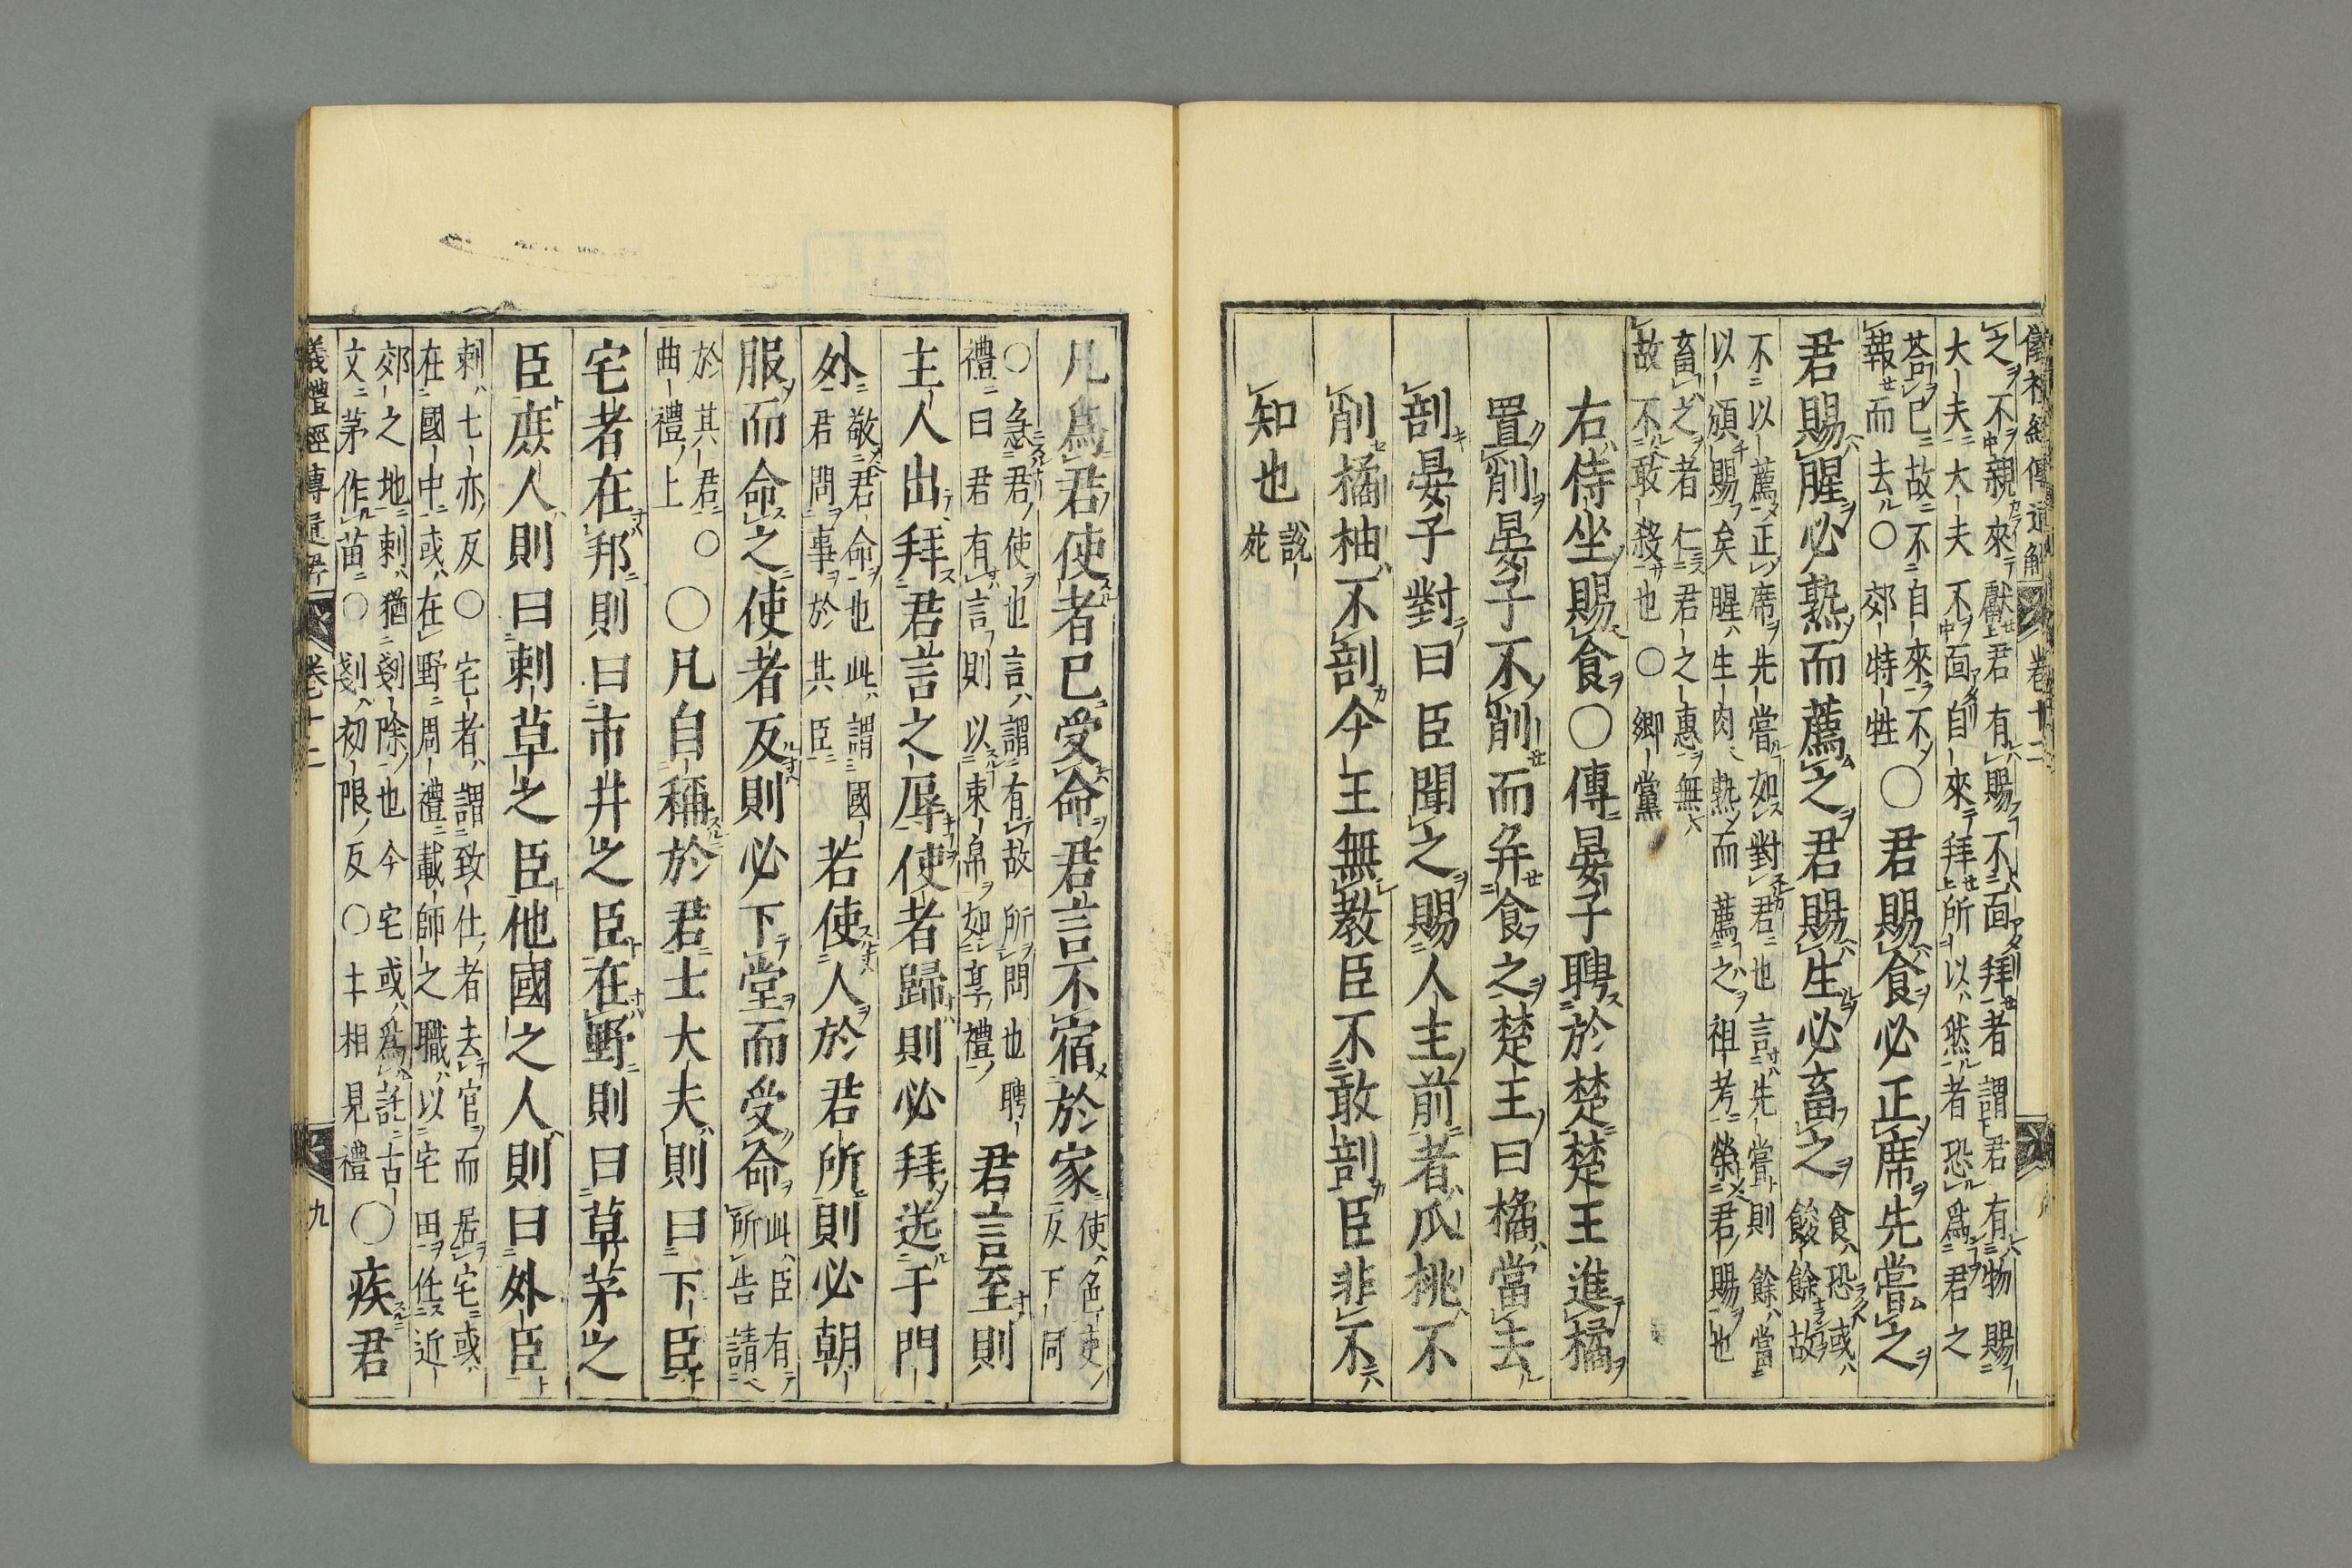 儀禮經傳通解 卷十二
之不親來獻君有賜不面拜者謂君有物賜
大夫大夫不面自來拜所以然者恐爲君之
荅已故不自來不
報而去○郊特牲
○君賜食必正席先嘗之
君賜腥必熟而薦之君賜生必畜之
食恐或
餕餘故
不以薦正席先嘗如對君也言先嘗則餘當
以頒賜矣腥生肉熟而薦之祖考榮君賜也
畜之者仁君之惠無
故不敢殺也○鄉黨
右侍坐賜食○傳晏子聘於楚楚王進橘
置削晏子不削而幷食之楚王曰橘當去
剖晏子對曰臣聞之賜人主前者瓜桃不
削橘柚不剖今王無教臣不敢剖臣非不
知也
說
苑
凡爲君使者已受命君言不宿於家
使色吏
反下同
○急君使也言謂有故所問也聘
禮曰君有言則以束帛如享禮
君言至則
主人出拜君言之辱使者歸則必拜送于門
外
敬君命也此謂國
君問事於其臣
若使人於君所則必朝
服而命之使者反則必下堂而受命
此臣有
所告請
於其君○
曲禮上
○凡自稱於君士大夫則曰下臣
宅者在邦則曰市井之臣在野則曰草茅之
臣庶人則曰刺草之臣他國之人則曰外臣
刺七亦反○宅者謂致仕者去官而居宅或
在國中或在野周禮載師之職以宅田任近
郊之地刺猶剗除也今宅或爲託古
文茅作苗○剗初限反○士相見禮
○疾君
儀禮經傳通解 卷十二 九